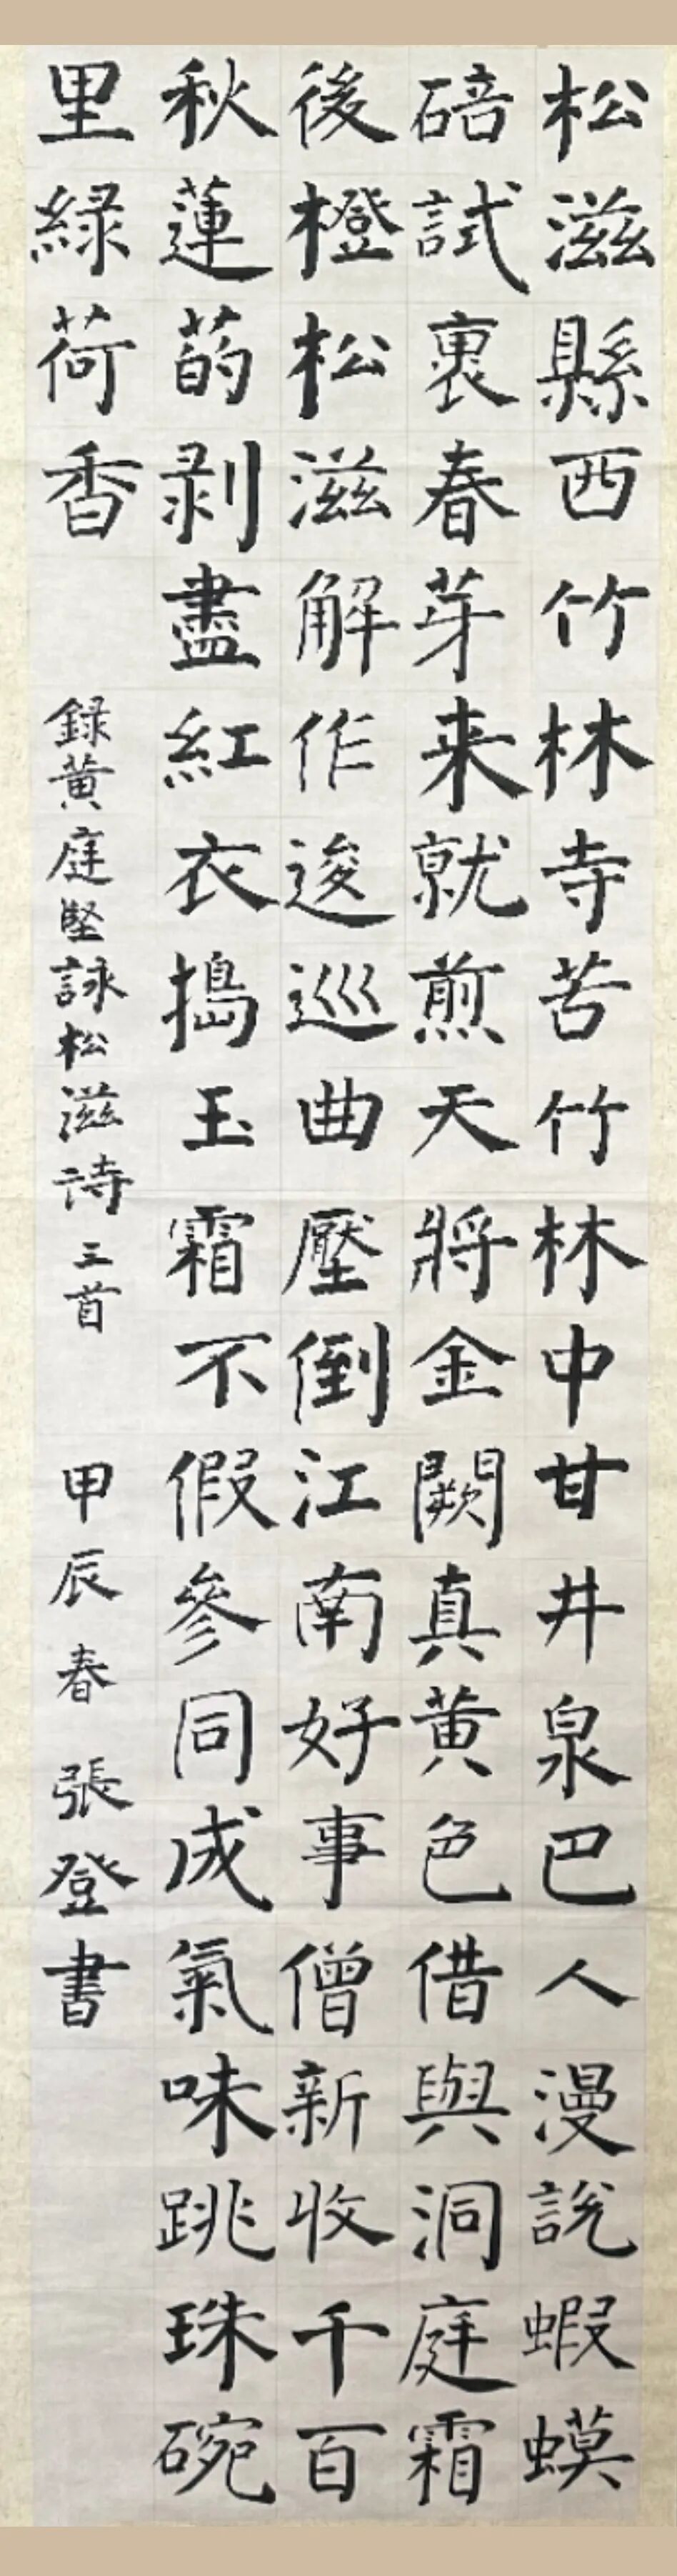 松滋縣西竹林寺苦竹林中甘井泉巴人漫説蝦蟆
碚試裹春芽来就煎天將金闕真黄色借與洞庭霜
後橙松滋解作逡巡曲壓倒江南好事僧新收千百
秋蓮菂剥盡紅衣搗玉霜不假參同成氣味跳珠碗
里緑荷香
録黄庭堅詠松滋詩三首
甲辰春張登書